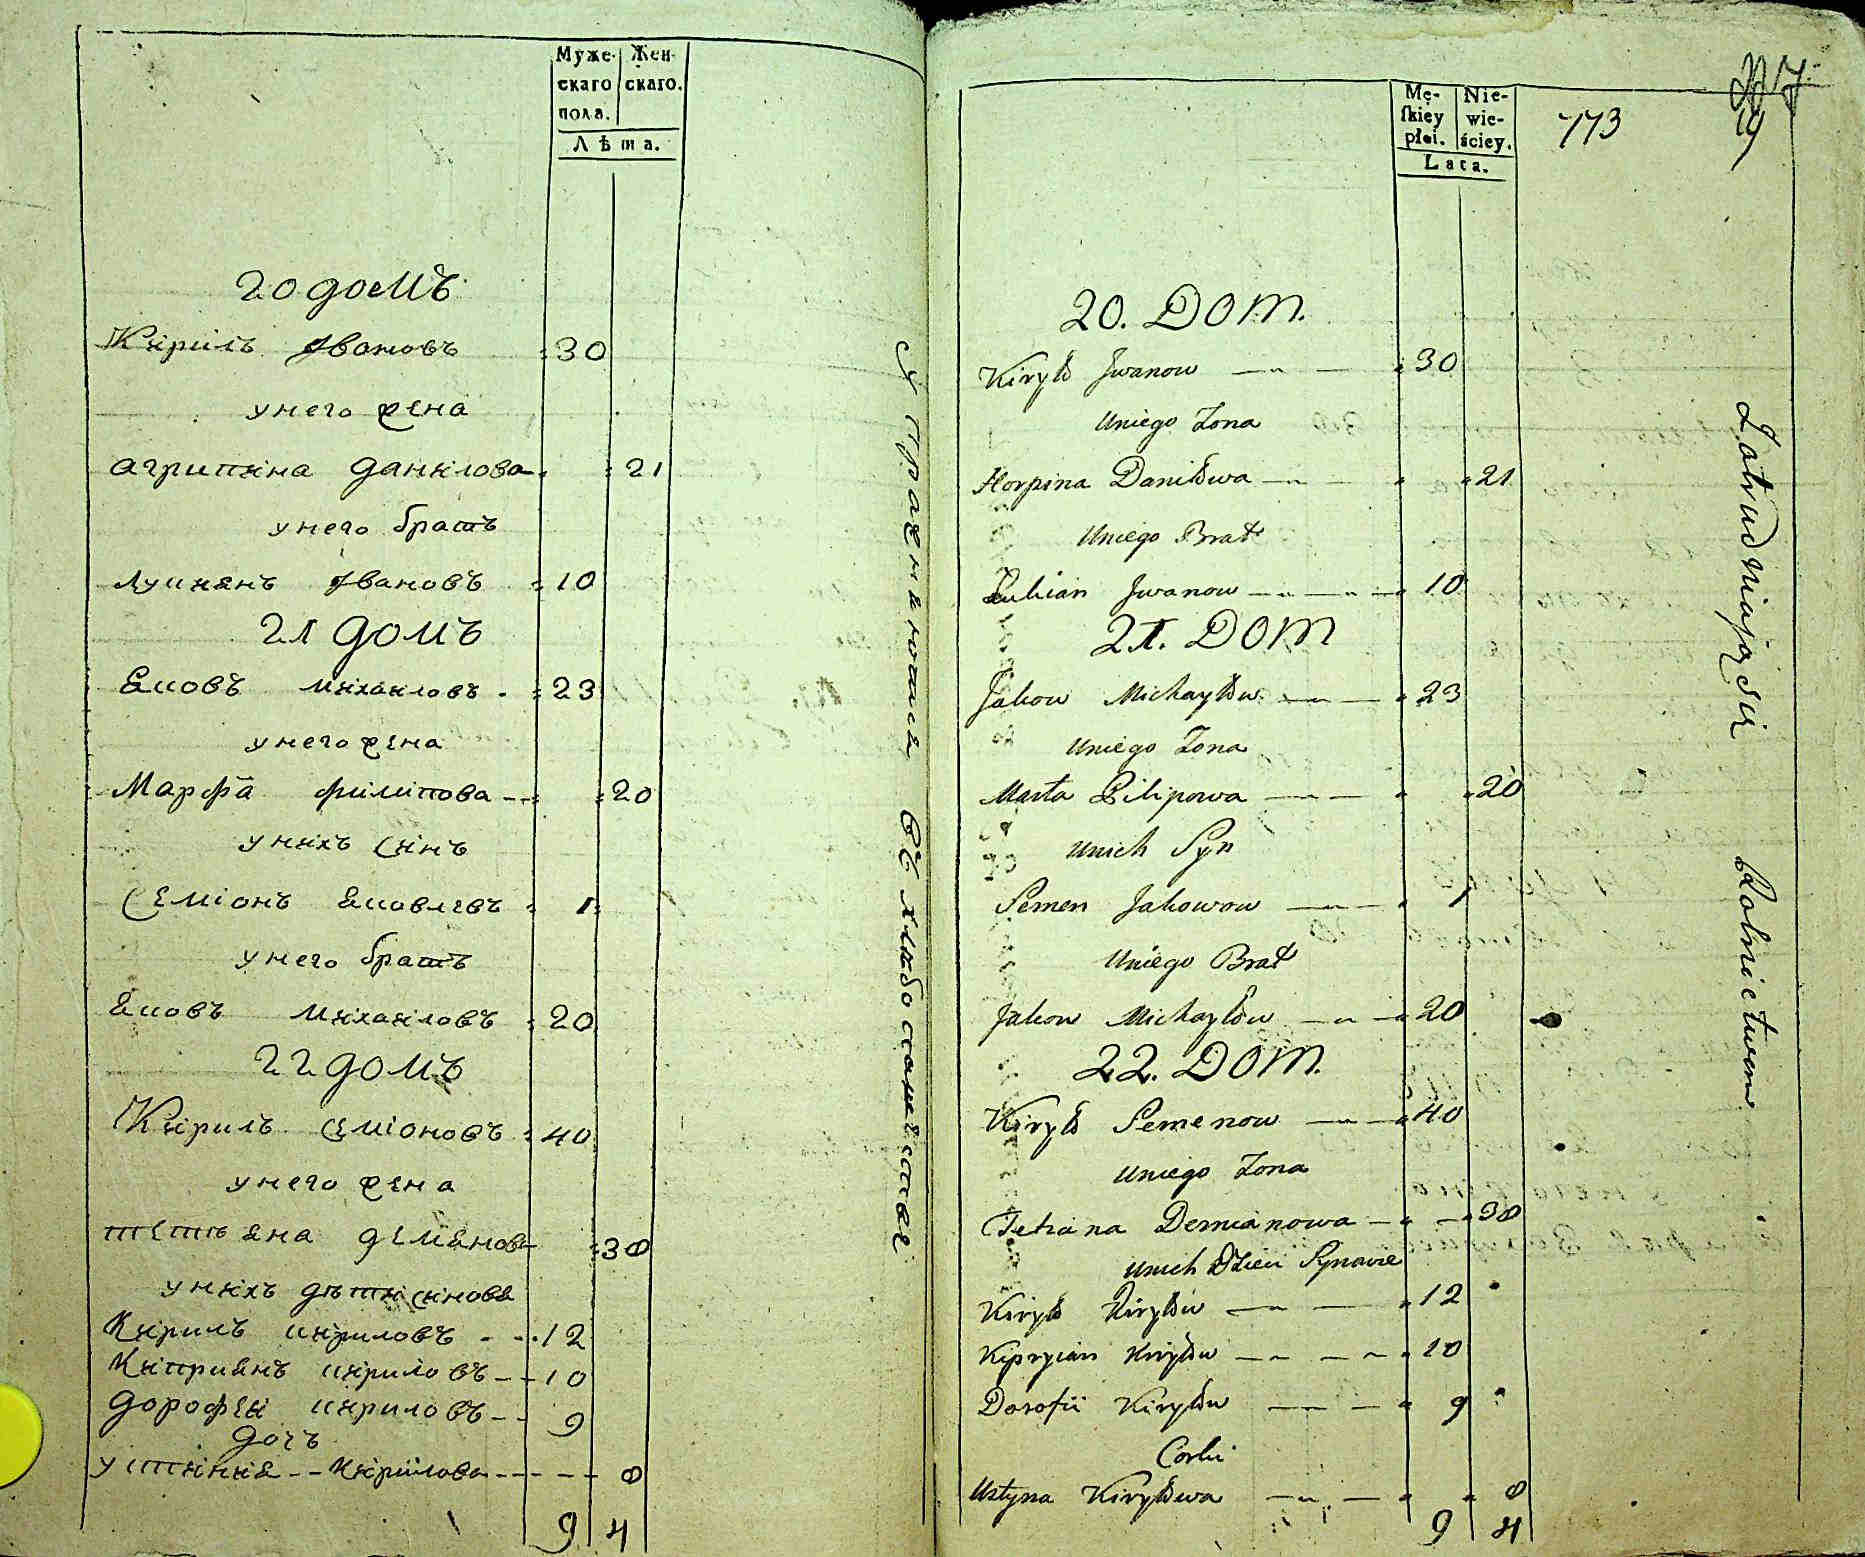 Муже- Жен-
скаго скаго.
пола.
Лѣта.
20 домъ
Кирилъ Ивановъ 30
у него жена
Агрипина Данилова 21
у него братъ
Лукиянъ Ивановъ 10
21 домъ
Яковъ Михаиловъ 23
у него жена
Марфа Филипова 20
у нихъ синъ
Семіонъ Яковлевъ 1
у него братъ
Яковъ Михаиловъ 20
22 домъ
Кирилъ Семіоновъ 40
у него жена
Тетьяна Демянова 38
у нихъ дѣти синовя
Кирилъ Кириловъ 12
Киприянъ Кириловъ 10
Дорофеи Кириловъ 9
дочь
Устиния Кирилова 8
9 4
Упражняются въ хлѣбопашествѣ
Mę- Nie-
skiey wie-
płci. ściey.
Lata.
113
20. DOM.
Kiryło Jwanow 30
Uniego Zona
Horpina Daniłowa 21
Uniego Brat
Łukian Jwanow 10
21. DOM
Jakow Michayłow 23
Uniego Zona
Marta Pilipowa 20
Unich Syn
Semen Jakowow 1
Uniego Brat
Jakow Michayłow 20
22. DOM.
Kiryło Semenow 40
Uniego Zona
Tetiana Demianowa 38
Unich Dzieci Synowie
Kiryło Kiryłow 12
Kipryian Kiryłow 10
Dorofii Kiryłow 9
Corki
Ustyna Kiryłowa 8
9 4
Zatrudniają się Rolnictwem